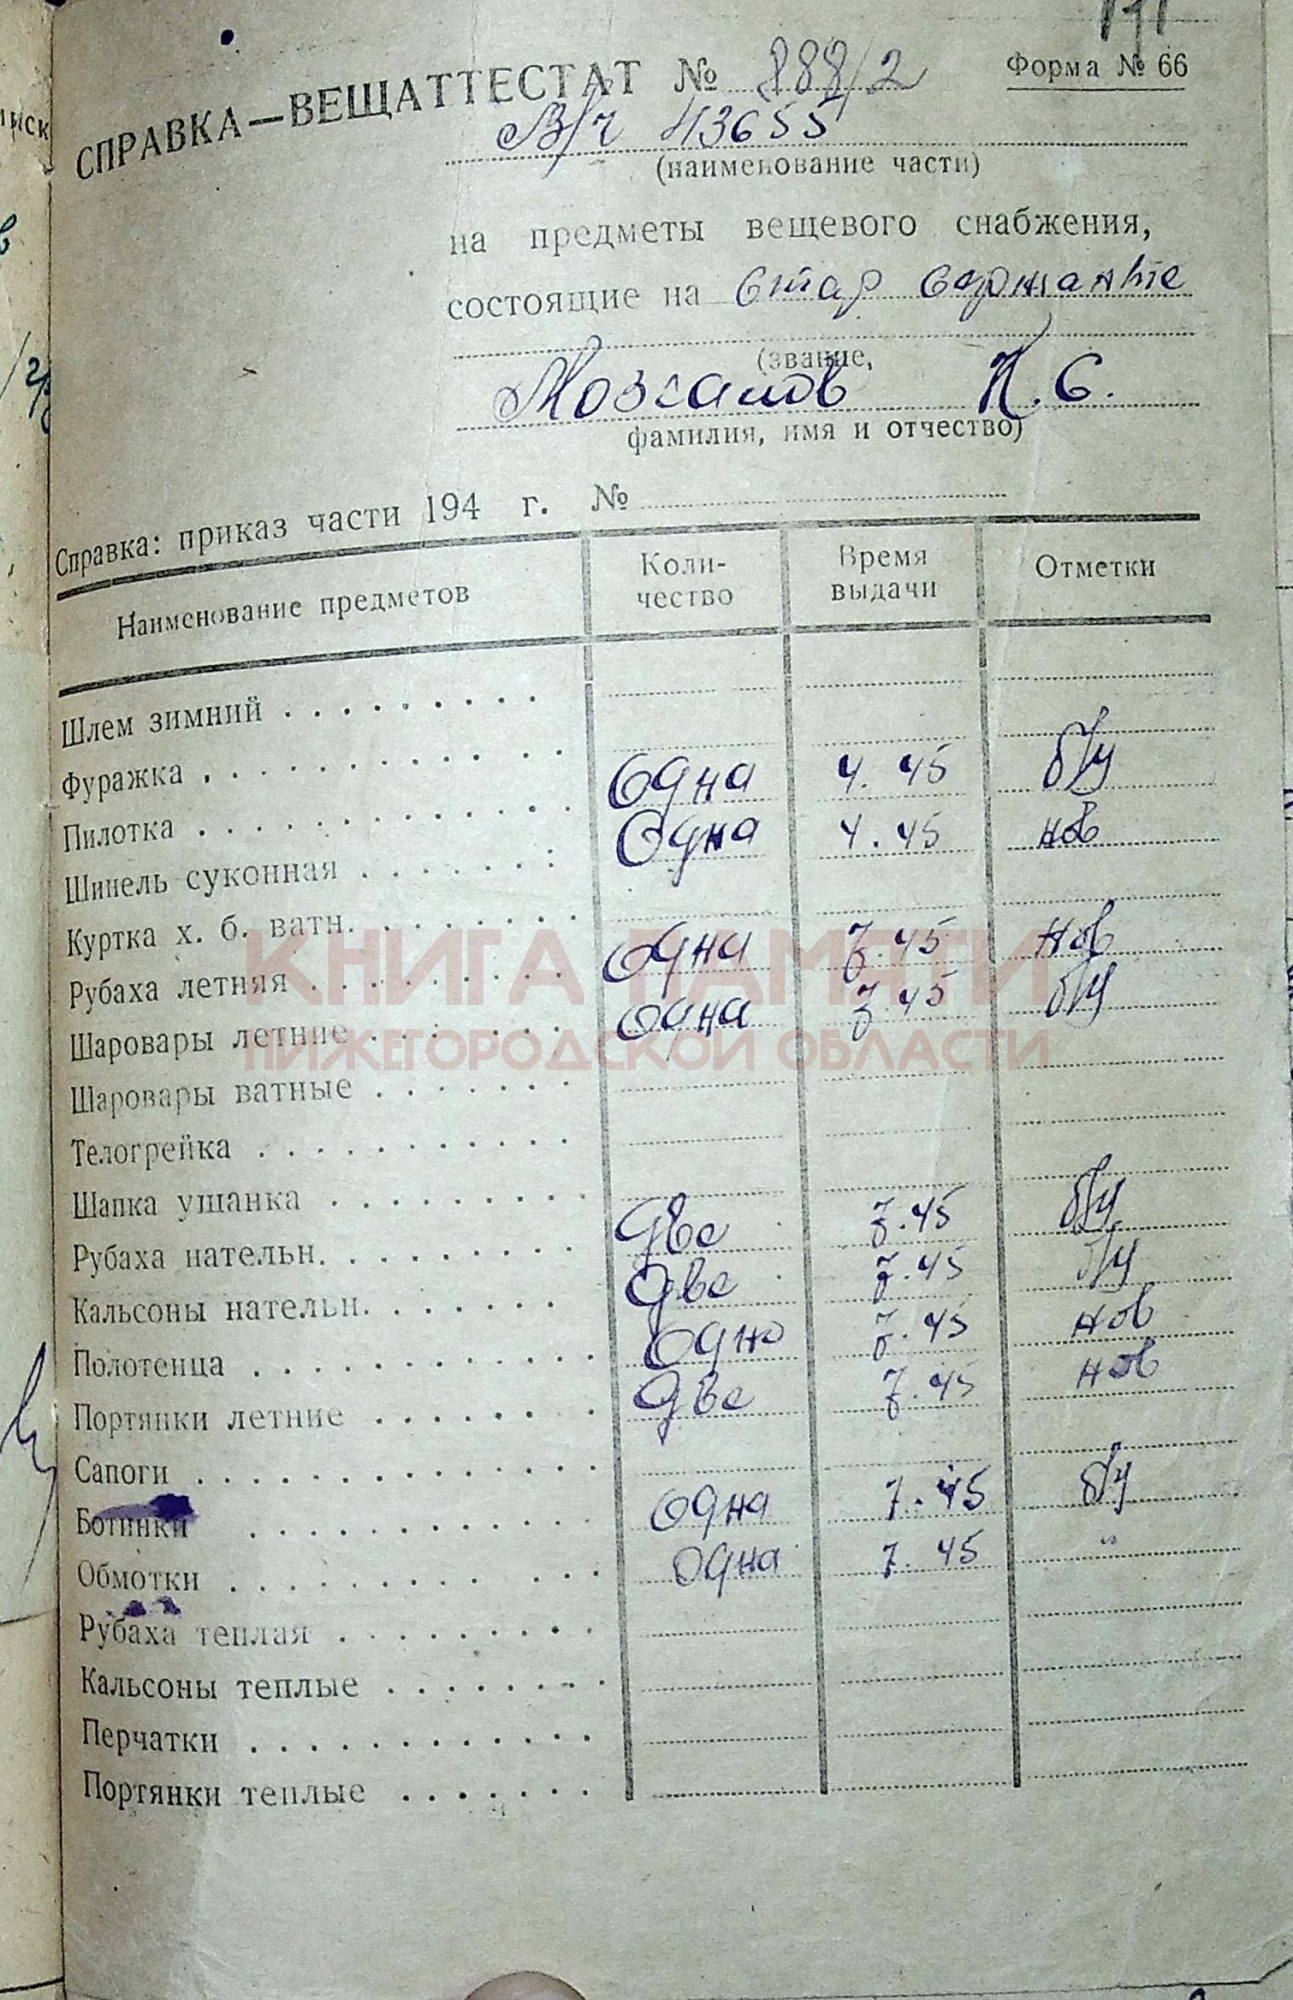 Форма № 66
СПРАВКА—ВЕЩАТТЕСТАТ № 888/2
В/ч 43655
(наименование части)
на предметы вещевого снабжения,
состоящие на Стар сержанте
(звание,
Мозгалов К. С.
фамилия, имя и отчество)
Справка: приказ части 194 г. №
Наименование предметов Коли-чество Время выдачи Отметки
Шлем зимний
Фуражка
Пилотка Одна 4. 45 б/у
Шинель суконная Одна 4. 45 нов
Куртка х. б. ватн.
Рубаха летняя Одна 7.45 нов
Шаровары летние одна 7.45 б/у
Шаровары ватные
Телогрейка
Шапка ушанка
Рубаха нательн. Две 7.45 б/у
Кальсоны нательн. Две 7.45 б/у
Полотенца Одно 7.45 нов
Портянки летние Две 7.45 нов
Сапоги
Ботинки одна 7.45 б/у
Обмотки одна 7.45 "
Рубаха теплая
Кальсоны теплые
Перчатки
Портянки теплые
КНИГА ПАМЯТИ
НИЖЕГОРОДСКОЙ ОБЛАСТИ